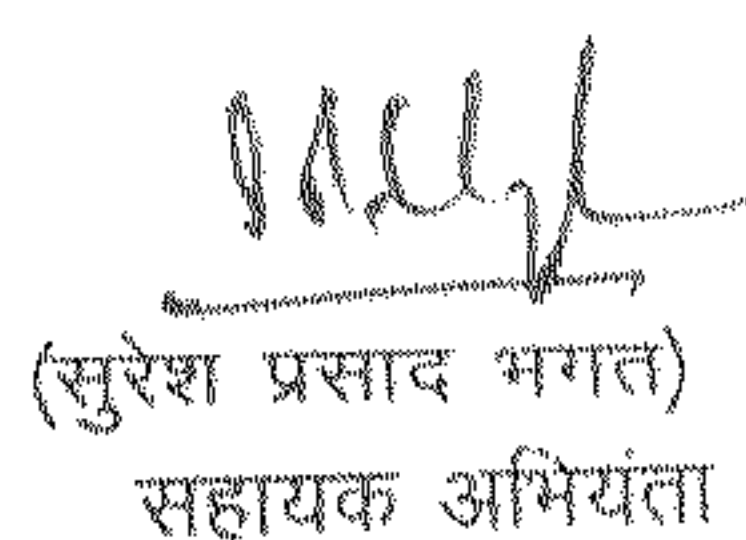 (सुरेश प्रसाद भगत)
सहायक अभियंता